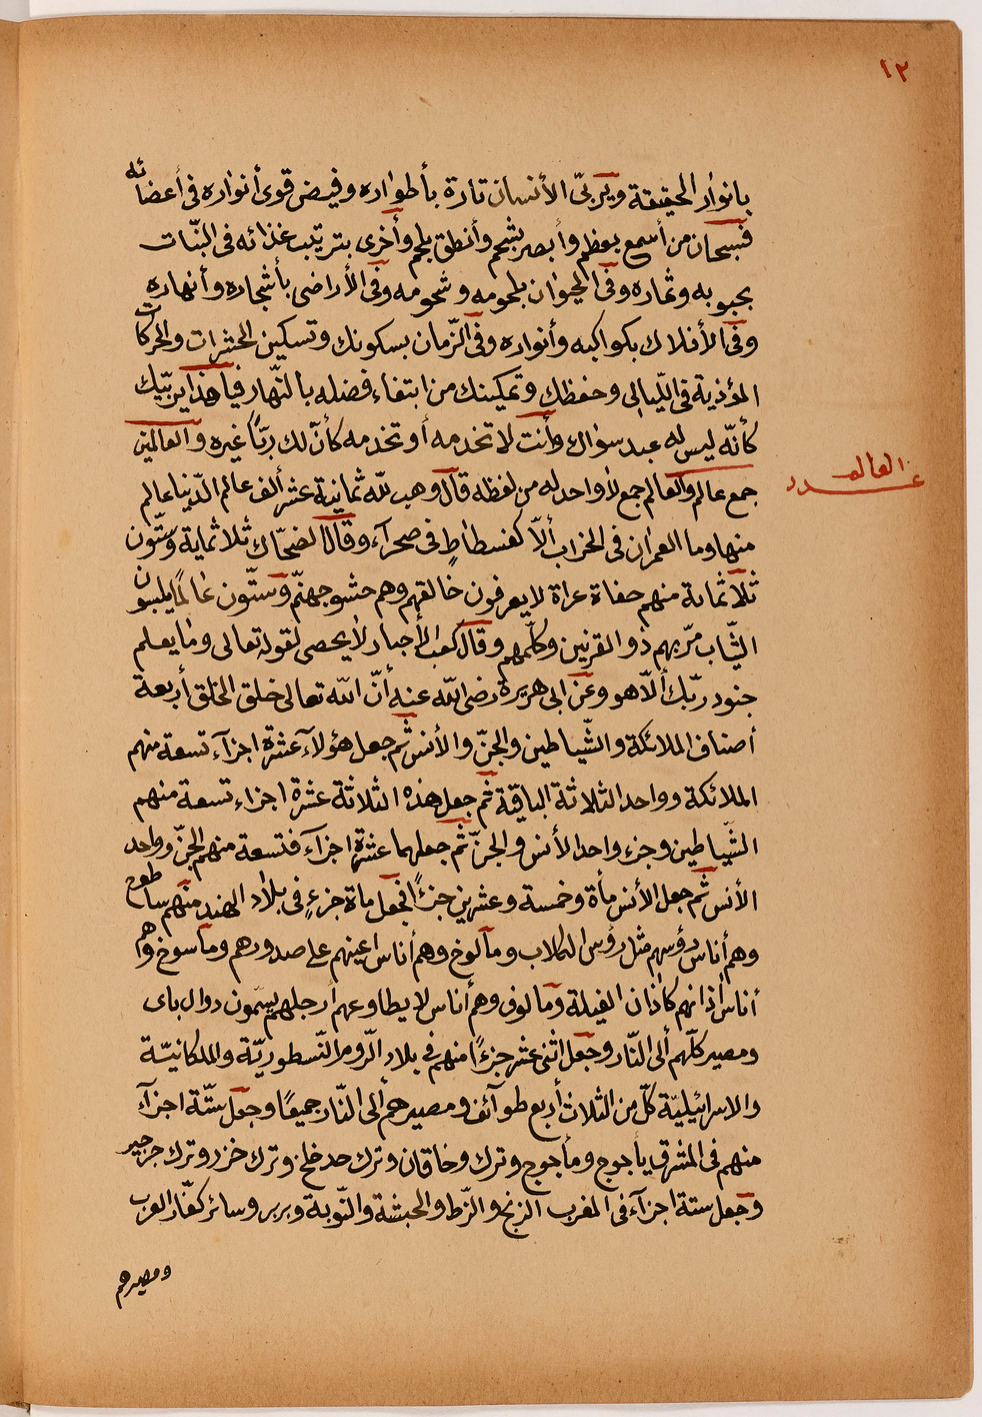 ١٢
بانوار الحقيقة ويربّى الأنسان تارة بأطواره وفيض قوى أنواره فى أعضائه
فسبحان من أسمع بعظم وأبصر بشحم وأنطق بلحم وأخرى بترتيب غذائه فى النّبات
بحبوبه وثماره وفى الحيوان بلحومه وشحومه وفى الأراضى بأشجاره وأنهاره
وفى الأفلاك بكواكبه وأنواره وفى الزّمان بسكونك وتسكين الحشرات والحركات
المؤذية فى اللّيالى وحفظك وتمكينك من ابتغاء فضله بالنّهار فيا هذا يربّيك
كأنّه ليس له عبد سواك وأنت لا تخدمه أو تخدمه كأنّ لك ربّاً غيره والعالمين
جمع عالم والعالم جمع لا واحد له من لفظه قال وهب للّه ثمانية عشر ألف عالم الدّنيا عالم
منها وما العمران فى الخراب ألاّ كفسطاطٍ فى صحرآء وقال الضحّاك ثلاثماية وستّون
ثلاثماية منهم حفاة عراة لا يعرفون خالقهم وهم حشو جهنّم وستّون عالمًا يلبسون
الثّياب مرّ بهم ذو القرنين وكلّمهم وقال كعب الأحبار لا يحصى لقوله تعالى وما يعلم
جنود ربّك ألاّ هو وعن ابى هريرة رضى اللّه عنه أنّ اللّه تعالى خلق الخلق أربعة
أصناف الملائكة والشّياطين والجنّ والأنس ثم جعل هؤلآء عشرة اجزآء تسعة منهم
الملائكة وواحد الثلاثة الباقية ثم جعل هذه الثلاثة عشرة اجزاء تسعة منهم
الشّياطين وجزء واحد الأنس والجنّ ثم جعلهما عشرة اجزآء فتسعة منهم الجنّ وواحد
الأنس ثم جعل الأنس مأة وخمسة وعشرين جزءًا فجعل ماة جزءٍ فى بلاد الهند منهم ساطوح
وهم أناس رؤسهم مثل رؤس الكلاب ومالوخ وهم أناس اعينهم على صدورهم وماسوخ وهم
أناس اذانهم كاذان الفيلة ومالوف وهم أناس لا يطاوعهم ارجلهم يسمّون دوال باى
ومصير كلّهم ألى النّار وجعل اثنى عشر جزءًا منهم فى بلاد الرّوم النّسطوريّة والملكانيّة
والاسرائيليّة كلّ من الثلاث أربع طوآئف ومصيرهم ألى النّار جميعًا وجعل ستّة اجزآء
منهم فى المشرق يأجوج ومأجوج وترك وخاقان وترك حد خلخ وترك خزر وترك جرجير
وجعل ستة اجزآء فى المغرب الزنج والزّط والحبشة والنّوبة وبربر وسائر كفّار العرب
ومصيرهم
عدد العالم